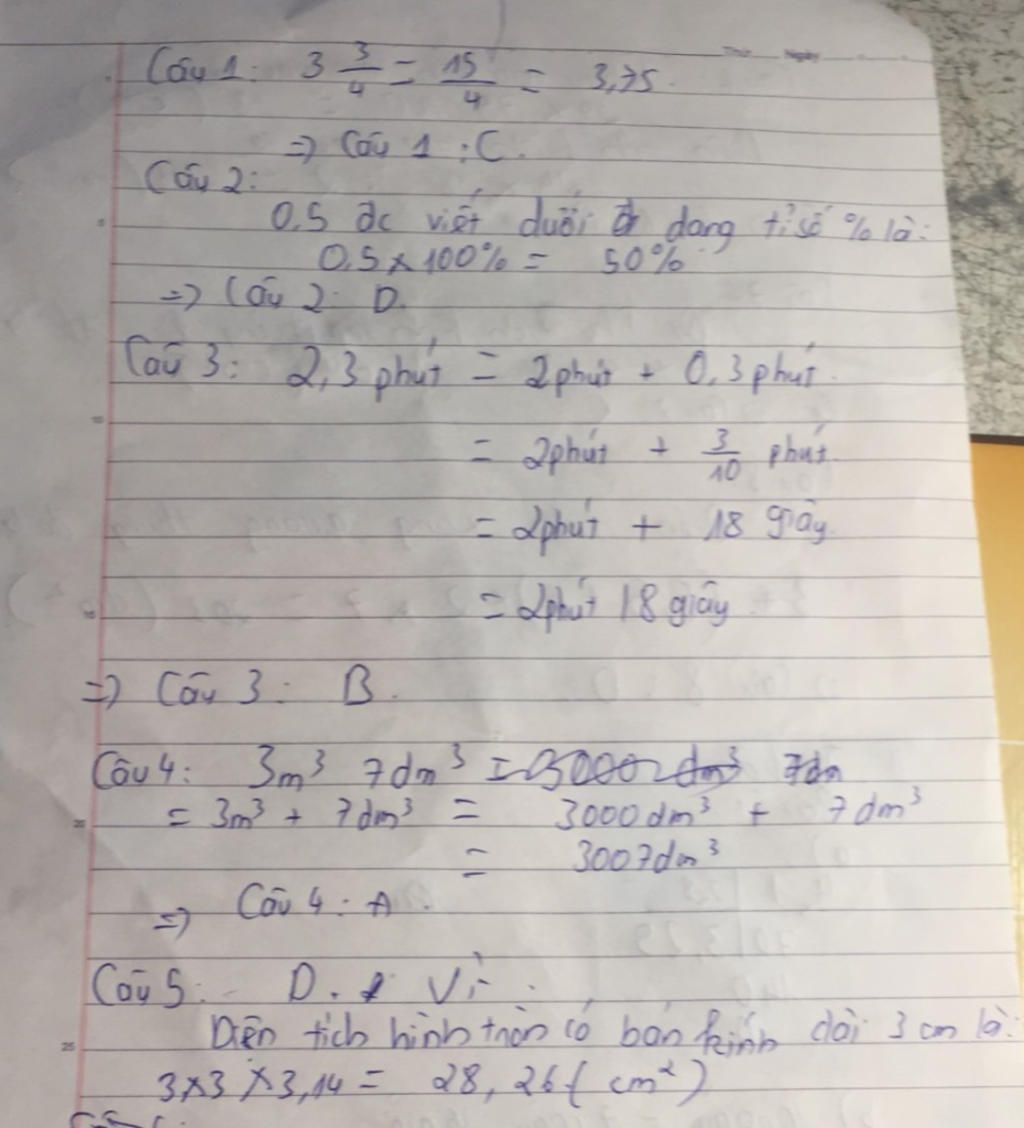 Thứ Ngày
Câu 1: 3 3/4 = 15/4 = 3,75.
=> Câu 1: C.
Câu 2:
0,5 đc viết dưới dạng tỉ số % là:
0,5 x 100% = 50%
=> Câu 2: D.
Câu 3: 2,3 phút = 2 phút + 0,3 phút.
= 2 phút + 3/10 phút
= 2 phút + 18 giây
= 2 phút 18 giây.
=> Câu 3: B.
Câu 4: 3m³ 7dm³
= 3m³ + 7dm³ = 3000dm³ + 7dm³
= 3007dm³
=> Câu 4: A.
Câu 5: D. Vì:
Diện tích hình tròn có bán kính dài 3 cm là:
25
3x3x3,14 = 28,26 (cm²)